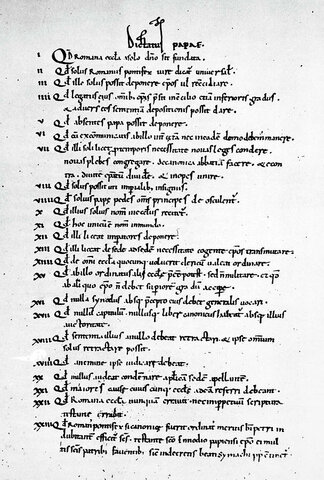 Dictatus papae.
I Qd Romana eccla a solo dno sit fundata.
II Qd solus Romanus pontifex iure dicat universal.
III Qd ille solus possit deponere epos vl reconciliare.
IIII Qd legatus eius omib. epis presit in concilio etiam inferioris gradus.
& adversus eos sententiam depositionis possit dare.
V Qd absentes papa possit deponere.
VI Qd cum excommunicatis ab illo in &tra nec in eadem domo debem manere.
VII Qd illi soli licet p temporis necessitate novas leges condere.
novas plebes congregare. de canonica abbatiam facere. & econ
tra. divite epatum divide. & inopes unire.
VIII Qd solus possit uti imperialib. insigniis.
VIIII Qd solius papę pedes oms principes deosculent.
X Qd illius solius nom in eccliis recitet.
XI Qd hoc unicu nom in mundo.
XII Qd illi liceat imperatores deponere.
XIII Qd illi liceat de sede ad sedem necessitate cogente epos transmutare
XIIII Qd de omi eccla quocunq voluerit clericu valeat ordinare.
XV Qd ab illo ordinatus alii ecclę preesse potest. sed n militare. & qd
ab aliquo epo n debet superiore gradu accipe.
XVI Qd nulla synodus absq pcepto eius debet generalis vocari.
XVII Qd nullu capitulum. nullusq liber canonicus habeat absq illius
auctoritate.
XVIII Qd sententia illius a nullo debeat retractari. & ipse omium
solus retractare possit.
XVIIII Qd a nemine ipse iudicari debeat.
XX Qd nullus audeat condemnare aplicam sede apellante.
XXI Qd maiores cause cuiuscunq ecclę ad eam referri debeant.
XXII Qd Romana eccla nunquam erravit. nec impptuum scriptura
testante errabit.
XXIII Qd Romanus pontifex si canonice fuerit ordinat meritis b petri in
dubitant efficit scs. testante sco Ennodio papiensi epo ei mul
tis scis patrib faventib. sicut in decretis beati Symachi pp cinet